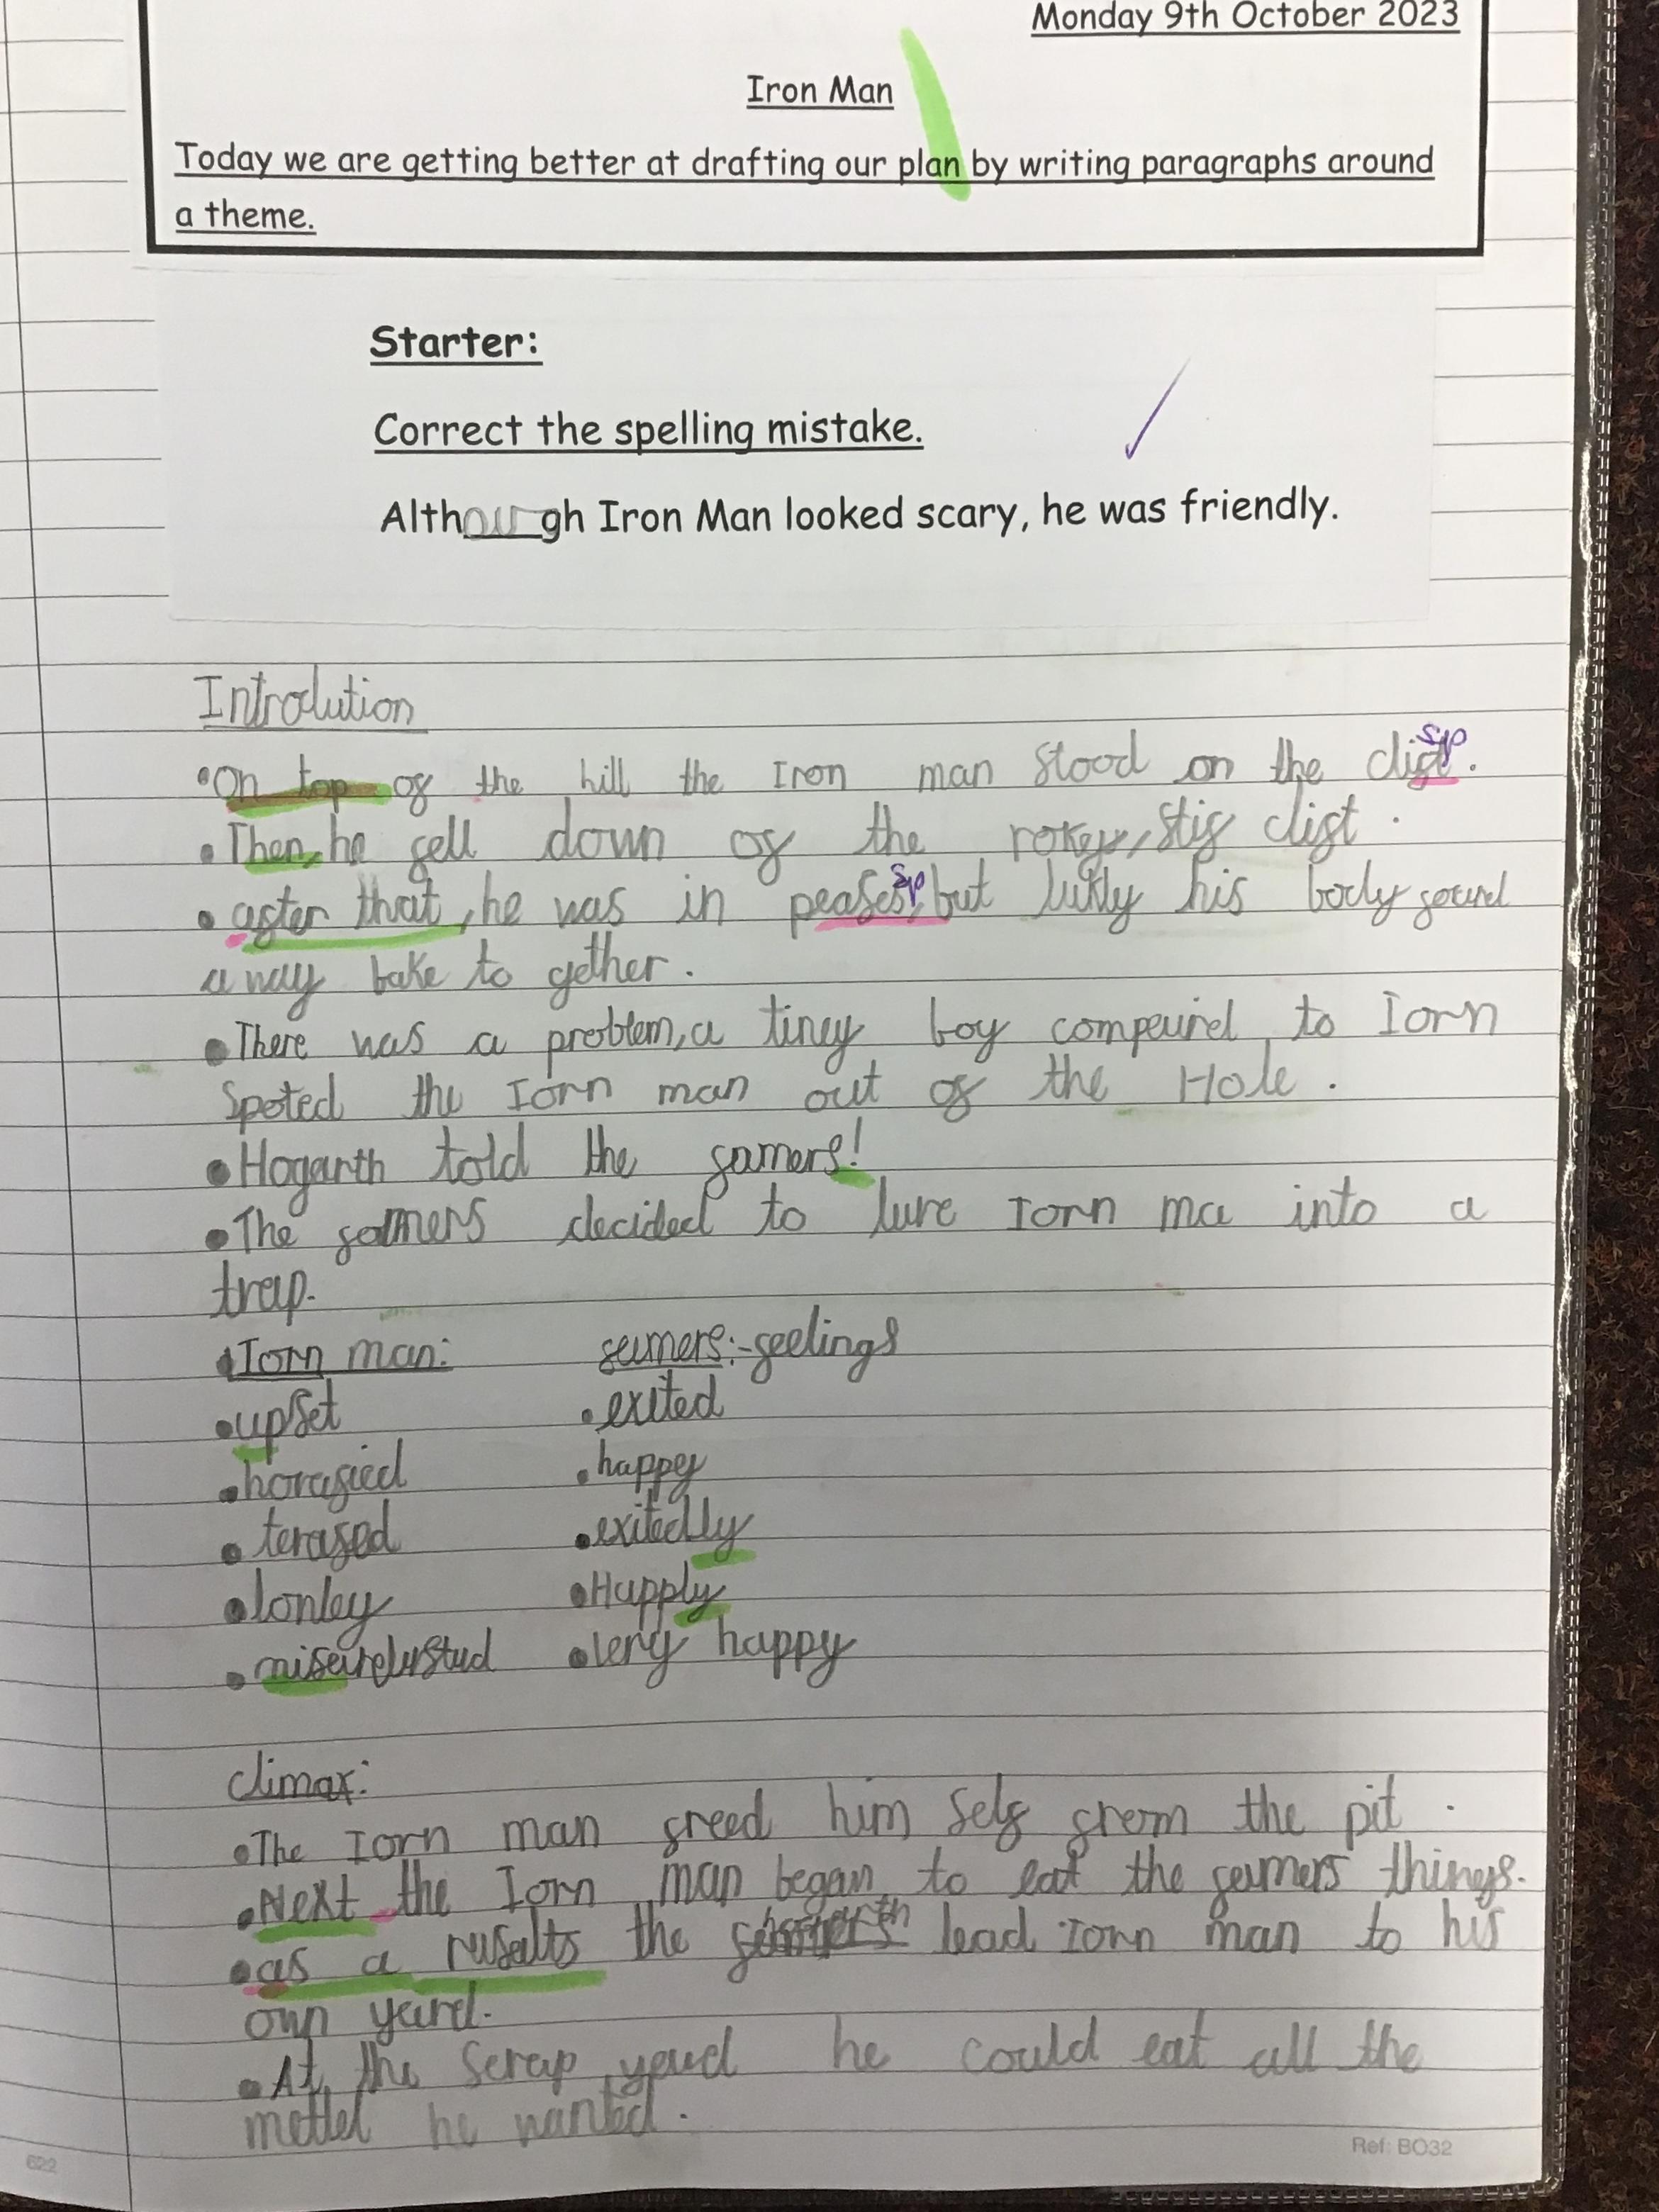 Monday 9th October 2023
Iron Man
Today we are getting better at drafting our plan by writing paragraphs around
a theme.
Starter:
Correct the spelling mistake.
Although Iron Man looked scary, he was friendly.
Introdution
•On top of the hill the Iron man stood on the clift.
sp
•Then, he fell down of the rokey, stif clift.
•after that, he was in peases, but lukly his body found
sp
a way bake to gether.
•There was a problem, a tiney boy compaired to Iorn
Spoted the Iorn man out of the Hole.
•Hogarth told the famers!
•The famers decided to lure Iorn ma into a
trap.
•Iorn man: famers:-feelings
•upset •exited
•horafied •happy
•terafed •exitedly
•lonley •Happly
• •very happy
climax:
•The Iorn man freed him self from the pit.
•Next the Iorn man began to eat the famers things.
•as a rusalts the lead Iorn man to his
own yard.
•At the Scrap yard he could eat all the
mettel he wanted.
622
Ref: BO32